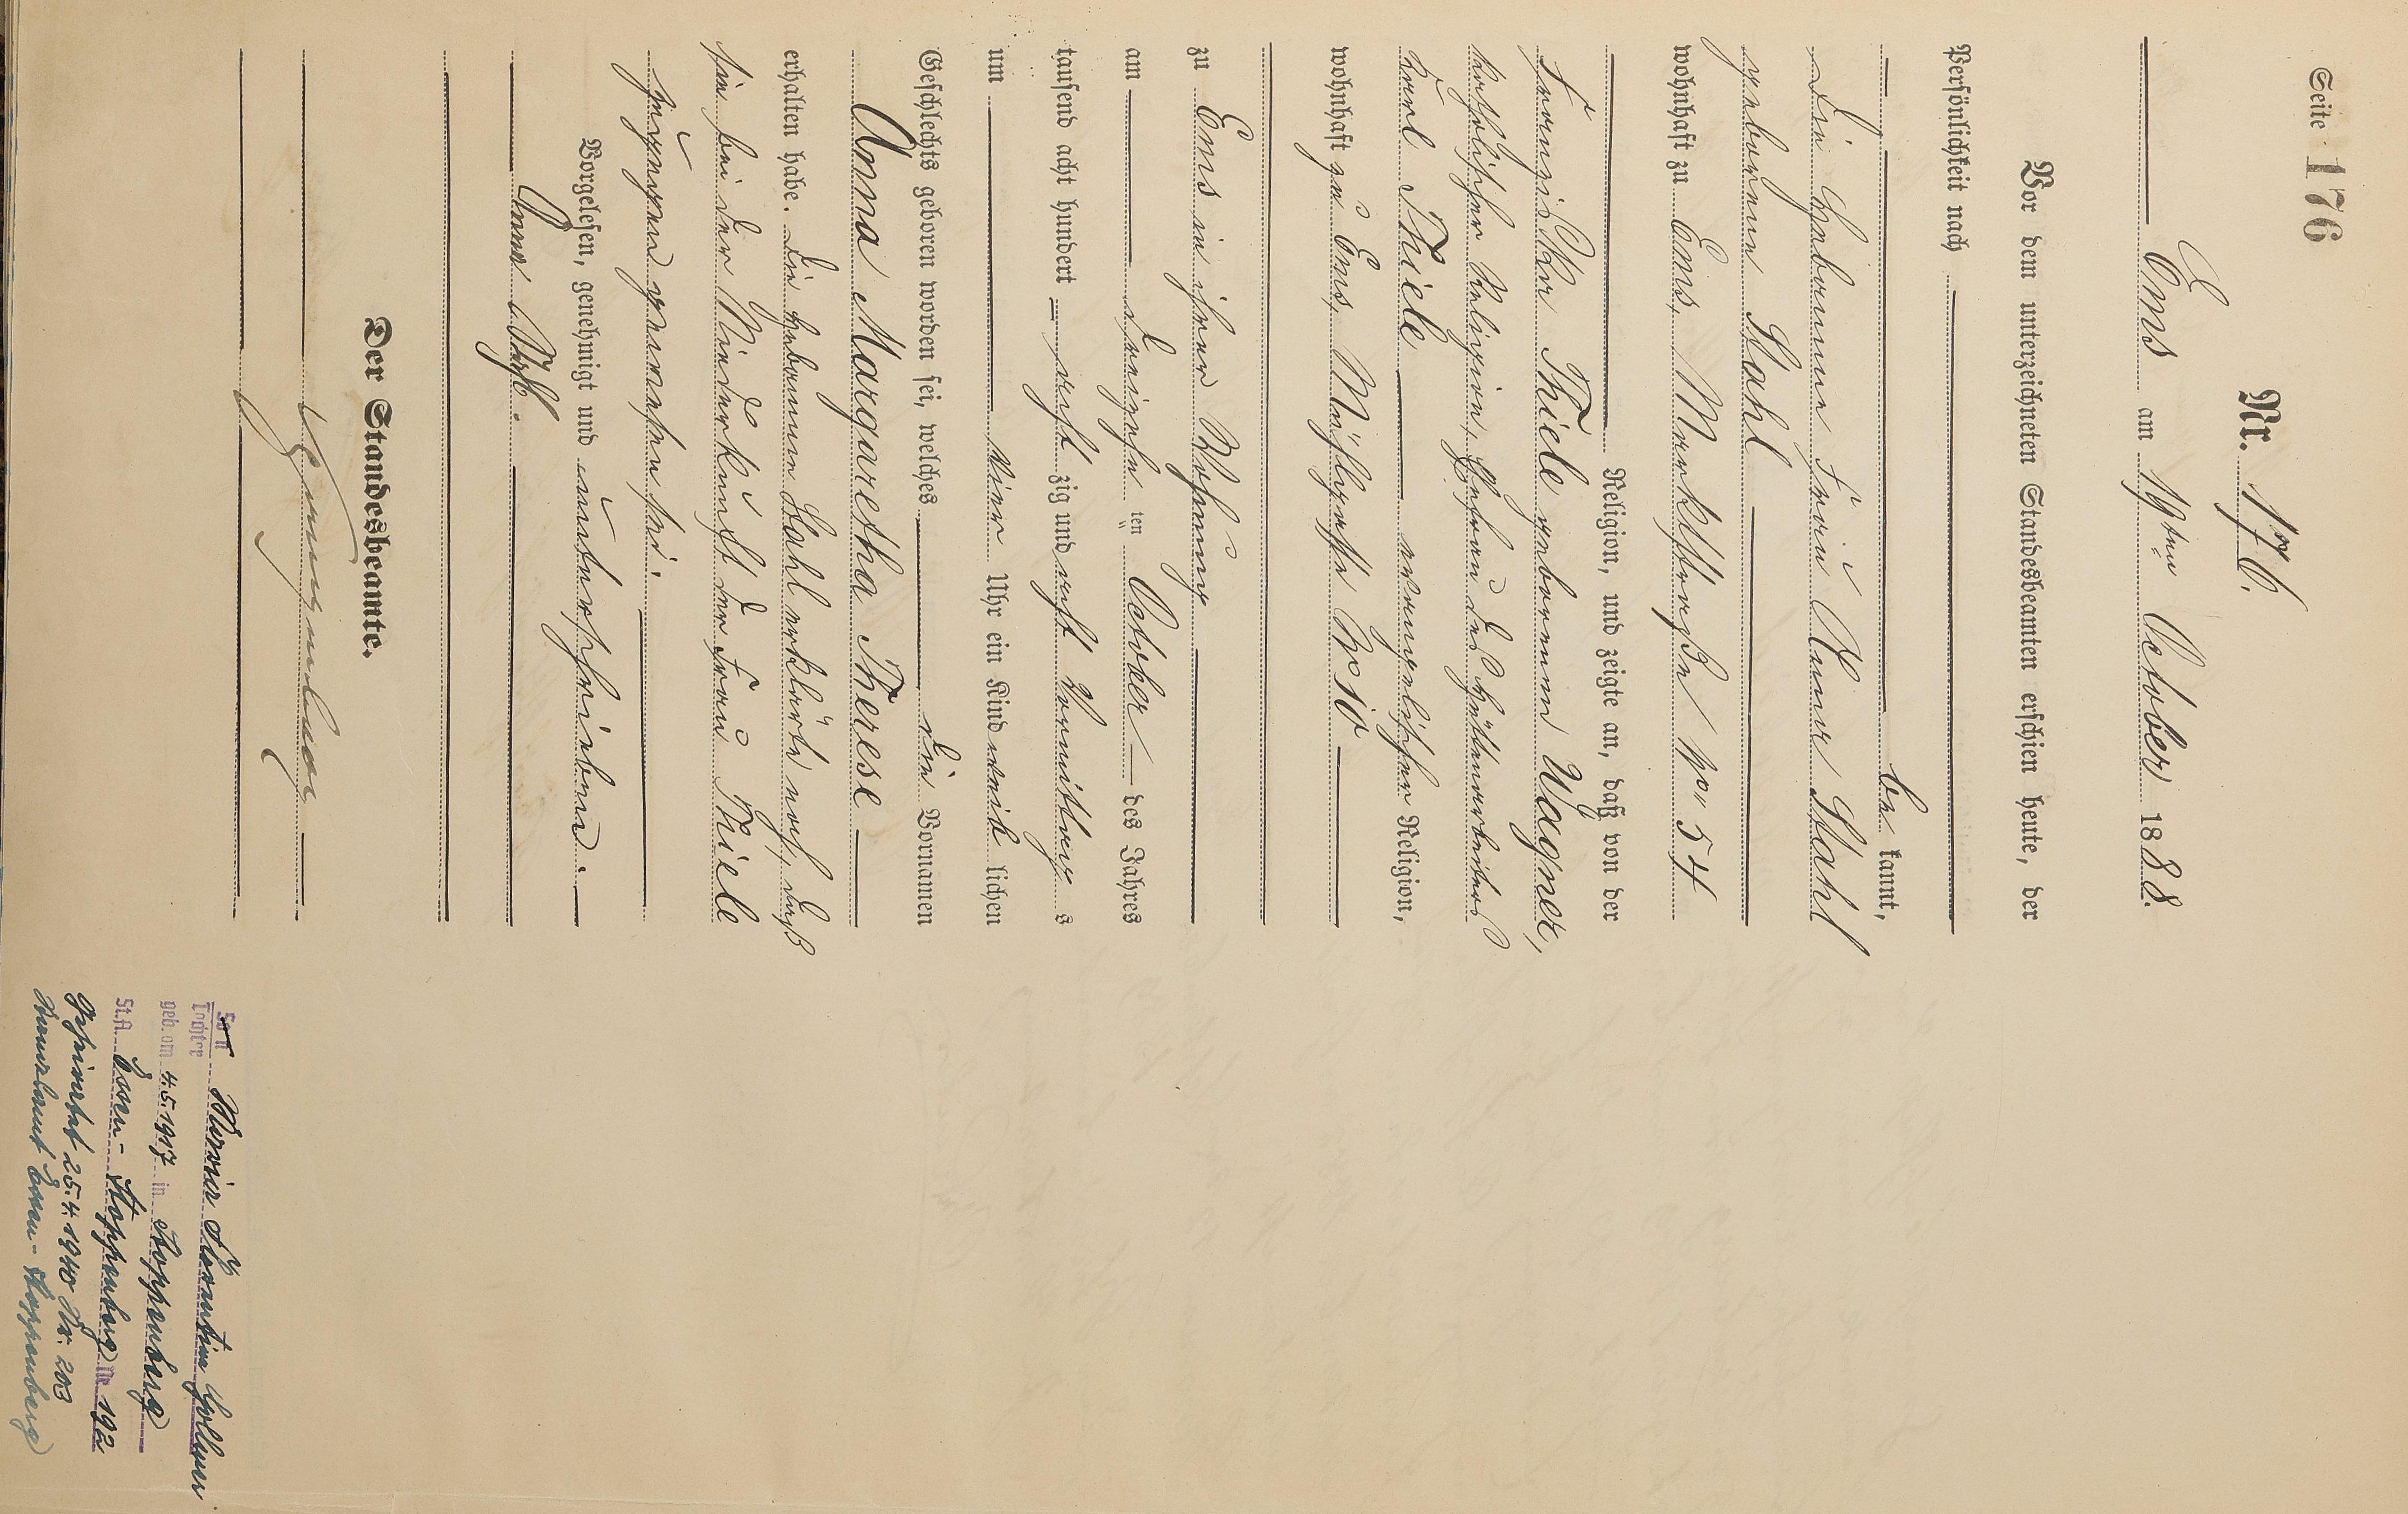 Seite 176
Nr. 176.
Ems am 19ten October 1888.
Vor dem unterzeichneten Standesbeamten erschien heute, der
Persönlichkeit nach
be kannt,
die Hebamme Frau Anna Stahl
geborene Stahl
wohnhaft zu Ems, Marktstraße No 54
Religion, und zeigte an, daß von der
Thiele geborenen Wagner,
katholischer Religion, Ehefrau des Hüttenarbeiters
Karl Thiele evangelischer Religion,
wohnhaft zu Ems, No 10
zu Ems in ihrer Wohnung
am dreizehn ten October des Jahres
tausend acht hundert acht zig und acht Vormittag s
um vier Uhr ein Kind weib lichen
Geschlechts geboren worden sei, welches die Vornamen
Anna Margaretha Therese
erhalten habe. Die Hebamme Stahl erklärte noch, daß
sie bei der Niederkunft der Frau Thiele
zugegen gewesen sei.
Vorgelesen, genehmigt und unterschrieben.
Anna Stahl.
Der Standesbeamte.
Sohn
Tochter Maria
geb. am 4.5.1917 in Stoppenberg
St.A. Essen-Stoppenberg Nr. 192
Geheiratet 25.4.1940 Nr. 203
Standesamt Essen-Stoppenberg